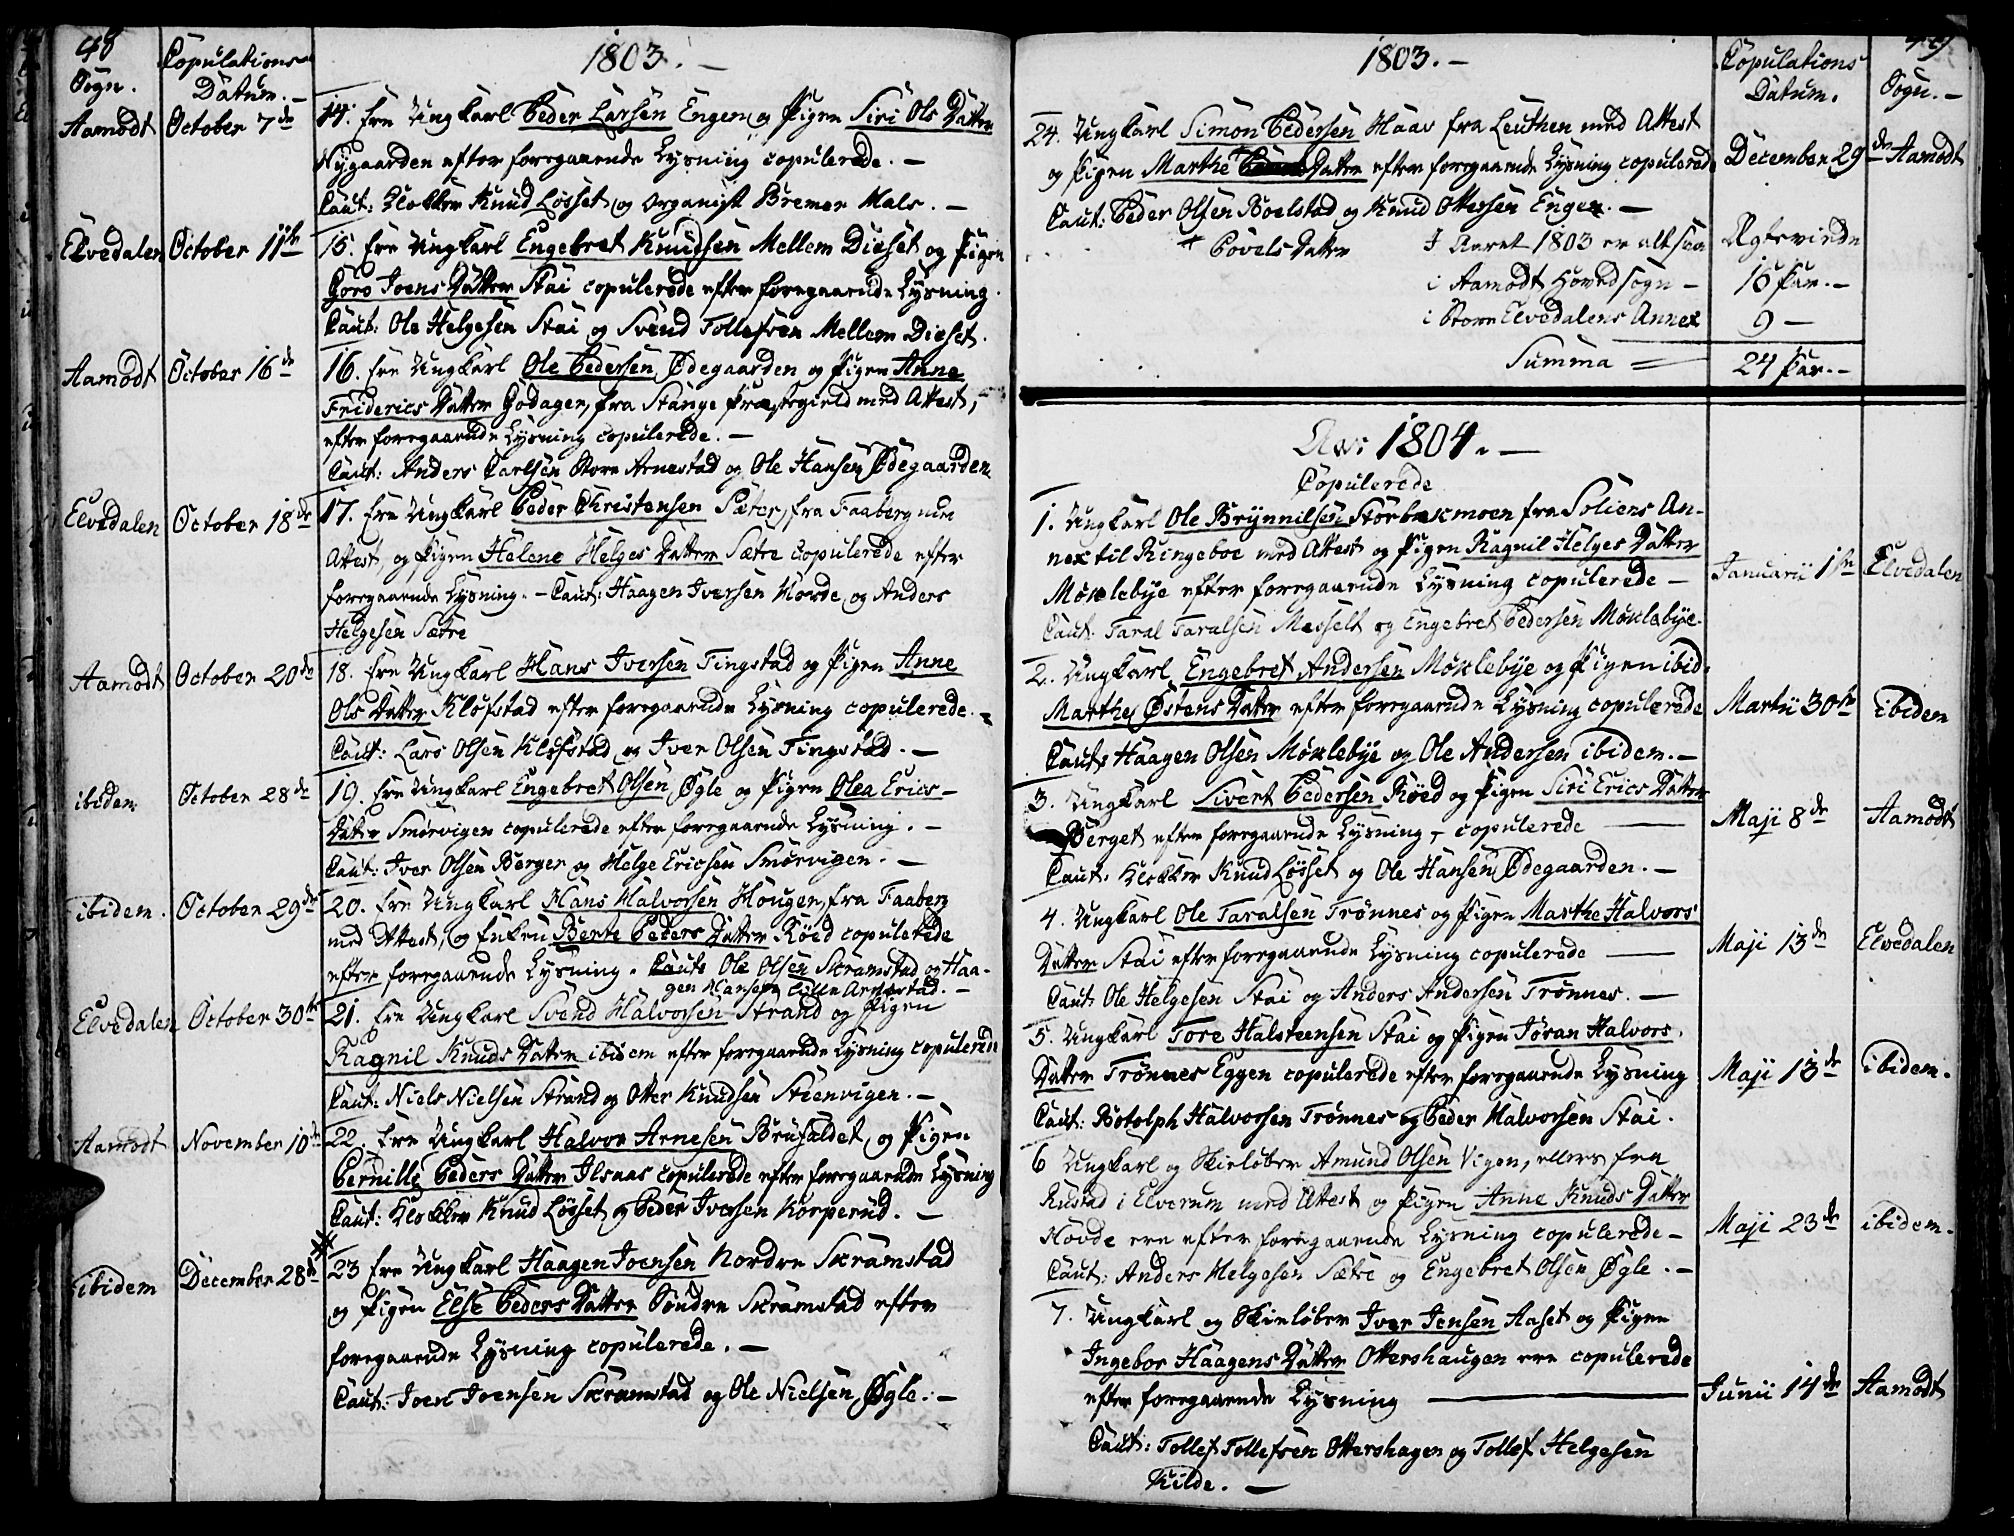 48
Sogn.
Copulations
Datum.
1803. –
Aamodt October 7de
14. Ere Ungkarl Peder Larsen Engen og Pigen Siri Ols Datter
Nygaarden efter foregaaende Lysning copulerede. –
Caut: Klokker Knud Løsset og Organist Bremer Mals. –
Elvedalen October 11te
15. Ere Ungkarl Engebret Knudsen Mellem Dieset og Pigen
Goro Joens Datter Stai copulerede efter foregaaende Lysning.
Caut: Ole Helgesen Stai og Svend Tollefsen Mellem Dieset.
Aamodt October 16de
16. Ere Ungkarl Ole Pedersen Ødegaarden og Pigen Anne
Friderics Datter Godager, fra Stange Præstegield med Attest,
efter foregaaende Lysning copulerede. –
Caut: Anders Carlsen Store Arnestad og Ole Hansen Ødegaarden
Elvedalen October 18de
17. Ere Ungkarl Peder Christensen Sæter, fra Faaberg med
Attest, og Pigen Helene Helges Datter Sætre copulerede efter
foregaaende Lysning. – Caut: Haagen Iversen Hovde og Anders
Helgesen Sætre
Aamodt October 20de
18. Ere Ungkarl Hans Iversen Tingstad og Pigen Anne
Ols Datter Kløfstad efter foregaaende Lysning copulerede. –
Caut: Lars Olsen Kløfstad og Iver Olsen Tingstad. –
ibidem October 28de
19. Ere Ungkarl Engebret Olsen Øgle og Pigen Olea Erics –
Datter Smørvigen copulerede efter foregaaende Lysning. –
Caut: Iver Olsen Berger og Helge Ericsen Smørvigen. –
ibidem. October 29de
20. Ere Ungkarl Hans Halvorsen Hougen, fra Faaberg
med Attest, og Enken Berte Peders Datter Røed copulerede
efter foregaaende Lysning. Caut: Ole Olsen Skramstad og Haa-
gen Hansen Lille Arnestad. –
Elvedalen October 30te
21. Ere Ungkarl Svend Halvorsen Strand og Pigen
Ragnil Knuds Datter ibidem efter foregaaende Lysning copulerede
Caut: Niels Nielsen Strand og Otter Knudsen Steenvigen. –
Aamodt November 10de
22. Ere Ungkarl Halvor Arnesen Brufaldet, og Pigen
Pernille Peders Datter Ilsaas copulerede efter foregaaende Lysning
Caut: Klokker Knud Løsset og Peder Iversen Korperud. –
ibidem December 28de
23 Ere Ungkarl Haagen Joensen Nordre Skramstad
og Pigen Else Peders Datter Søndre Skramstad efter
foregaaende Lysning copulerede. –
Caut: Joen Joensen Skramstad og Ole Nielsen Øgle. –
1803. –
Copulations
Datum.
49
Sogn. –
24. Ungkarl Simon Pedersen Haav fra Leuthen med Attest
og Pigen Marthe Datter efter foregaaende Lysning copulerede
December 29de Aamodt
Caut: Peder Olsen Boelstad og Knud Ottersen Engen. –
+ Povels Datter
I Aaret 1803 er altsaa Ægteviede
i Aamodt Hovedsogn – 15 Par. –
i Store Elvedalens Annex 9 –
Summa = 24 Par. –
Ao: 1804. –
Copulerede
1. Ungkarl Ole Brynnilsen Storbekmoen fra Soliens An-
nex til Ringeboe med Attest og Pigen Ragnil Helges Datter
Møklebye efter foregaaende Lysning copulerede –
Januarii 1te Elvedalen
Caut. Taral Taralsen Messelt og Engebret Pedersen Møklebye.
2. Ungkarl Engebret Andersen Møklebye og Pigen ibid.
Marthe Østens Datter efter foregaaende Lysning copulerede
Martii 30te ibidem
Caut: Haagen Olsen Møklebye og Ole Andersen ibidem. –
3. Ungkarl Sivert Pedersen Røed og Pigen Siri Erics Datter
Berget efter foregaaende Lysning – copulerede –
Maji 8de Aamodt
Caut: Klokker Knud Løsset og Ole Hansen Ødegaarden. –
4. Ungkarl Ole Taralsen Trønnes og Pigen Marthe Halvors
Datter Stai efter foregaaende Lysning copulerede –
Maji 13de Elvedalen
Caut: Ole Helgesen Stai og Anders Andersen Trønnes. –
5. Ungkarl Tore Halsteensen Stai og Pigen Jøran Halvors.
Datter Trønnes Eggen copulerede efter foregaaende Lysning
Maji 13de ibidem.
Caut: Botolph Halvorsen Trønnes og Peder Halvorsen Stai.
6 Ungkarl og Skieløber Amund Olsen Vigen, ellers fra
Rustad i Elverum med Attest og Pigen Anne Knuds Datter
Hovde ere efter foregaaende Lysning copulerede –
Maji 23de ibidem.
Caut: Anders Helgesen Sætre og Engebret Olsen Øgle. –
7. Ungkarl og Skieløber Iver Jensen Aaset og Pigen
Ingebor Haagens Datter Ottershaugen ere copulerede
efter foregaaende Lysning –
Junii 14de Aamodt
Caut: Tollef Tollefsen Ottershagen og Tollef Helgesen
Kilde. –